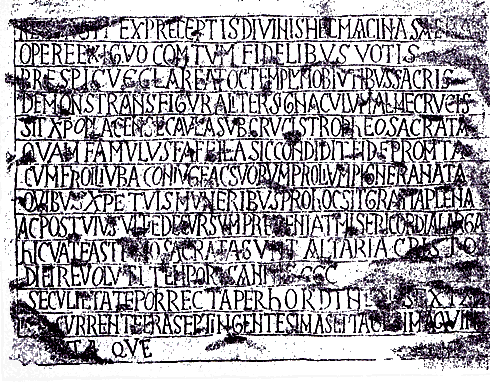 EX PRECEPTIS DIVINIS HEC MACINA SA
OPERE EXIGVO COMTVM FIDELIBVS VOTIS
PRESPICVE CLAREAT OC TEMPLM OBTVTIBVS SACRIS
DEMONSTRANS FIGVRALITER SIGNACVLVM ALME CRVCIS
SIT XPO PLACENS EC AVLA SVB CRVCIS TROPHEO SACRATA
QVAM FAMVLVS FAFFILA SIC CONDIDIT FIDE PROMTA
CVM FROILIVBA CONIVGE AC SVORVM PROLIVM PIGNERA NATA
QVIBVS XPE TVIS MVNERIBVS PRO HOC SIT GRATIA PLENA
AC POST VIVS VITE DECVRSVM PREVENIAT MISERICORDIA LARGA
HIC VATE ASTERIO SACRATA SVNT ALTARIA CRISTO
DIEI REVOLVTI TEMPORIS ANNIS CCC
SECVLI ETATE PORRECTA PER HORDINEM
CVRRENTE ERA SEPTINGENTESIMA SEPTAGESIMA QVIN
TA QVE